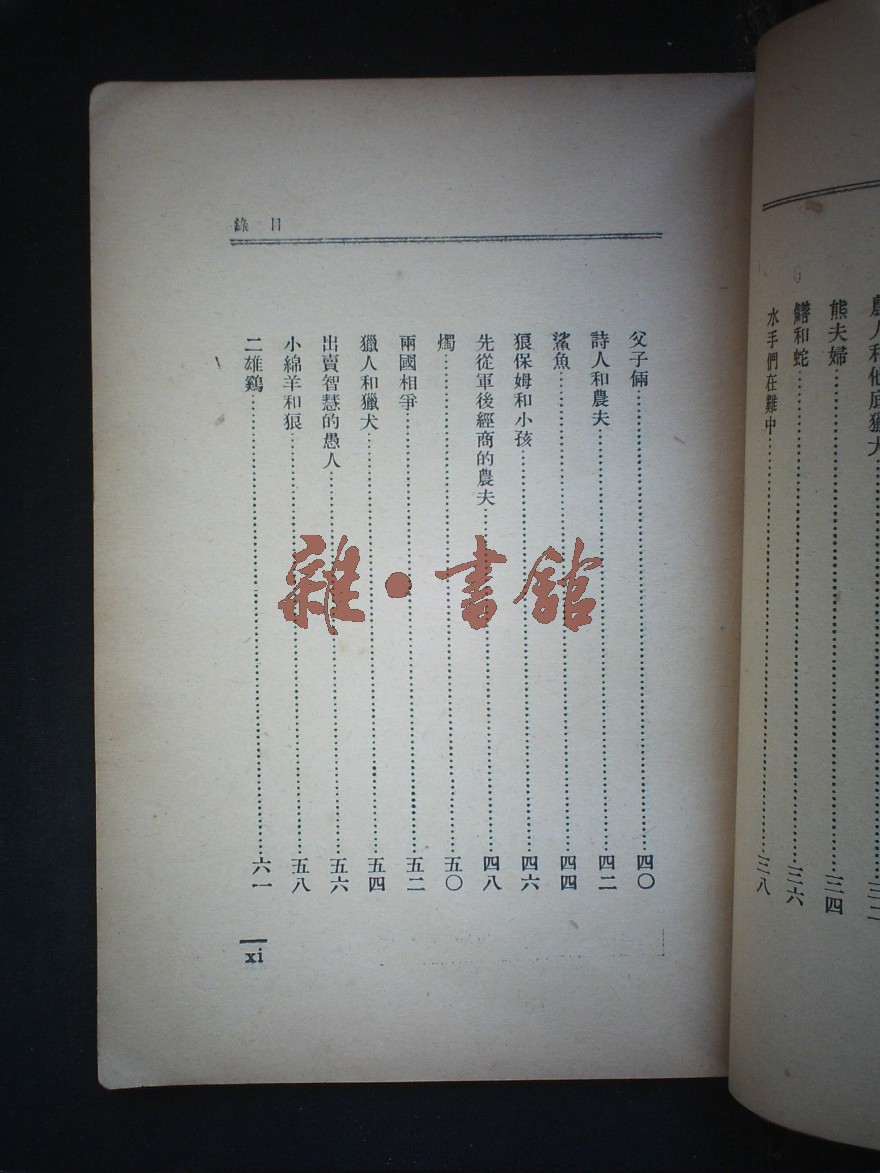 農人和他底獵犬…三二
熊夫婦…三四
鱔和蛇…三六
水手們在難中…三八
目錄
父子倆…四〇
詩人和農夫…四二
鯊魚…四四
狼保姆和小孩…四六
先從軍後經商的農夫…四八
燭…五〇
兩國相爭…五二
獵人和獵犬…五四
出賣智慧的愚人…五六
小綿羊和狼…五八
二雄鷄…六一
xi
雜·書館